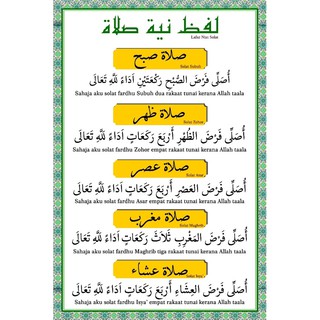 لفظ نية صلاة
Lafaz Niat Solat
صلاة صبح
Solat Subuh
أُصَلِّى فَرْضَ الصُّبْحِ رَكْعَتَيْنِ اَدَاءً لِلَّهِ تَعَالَى
Sahaja aku solat fardhu Subuh dua rakaat tunai kerana Allah taala
صلاة ظهر
Solat Zohor
أُصَلِّى فَرْضَ الظُّهْرِ أَرْبَعَ رَكَعَاتٍ اَدَاءً لِلَّهِ تَعَالَى
Sahaja aku solat fardhu Zohor empat rakaat tunai kerana Allah taala
صلاة عصر
Solat Asar
أُصَلِّى فَرْضَ العَصْرِ أَرْبَعَ رَكَعَاتٍ اَدَاءً لِلَّهِ تَعَالَى
Sahaja aku solat fardhu Asar empat rakaat tunai kerana Allah taala
صلاة مغرب
Solat Maghrib
أُصَلِّى فَرْضَ المَغْرِبِ ثَلَاثَ رَكَعَاتٍ اَدَاءً لِلَّهِ تَعَالَى
Sahaja aku solat fardhu Maghrib tiga rakaat tunai kerana Allah taala
صلاة عشاء
Solat Isya'
أُصَلِّى فَرْضَ العِشَاءِ أَرْبَعَ رَكَعَاتٍ اَدَاءً لِلَّهِ تَعَالَى
Sahaja aku solat fardhu Isya' empat rakaat tunai kerana Allah taala